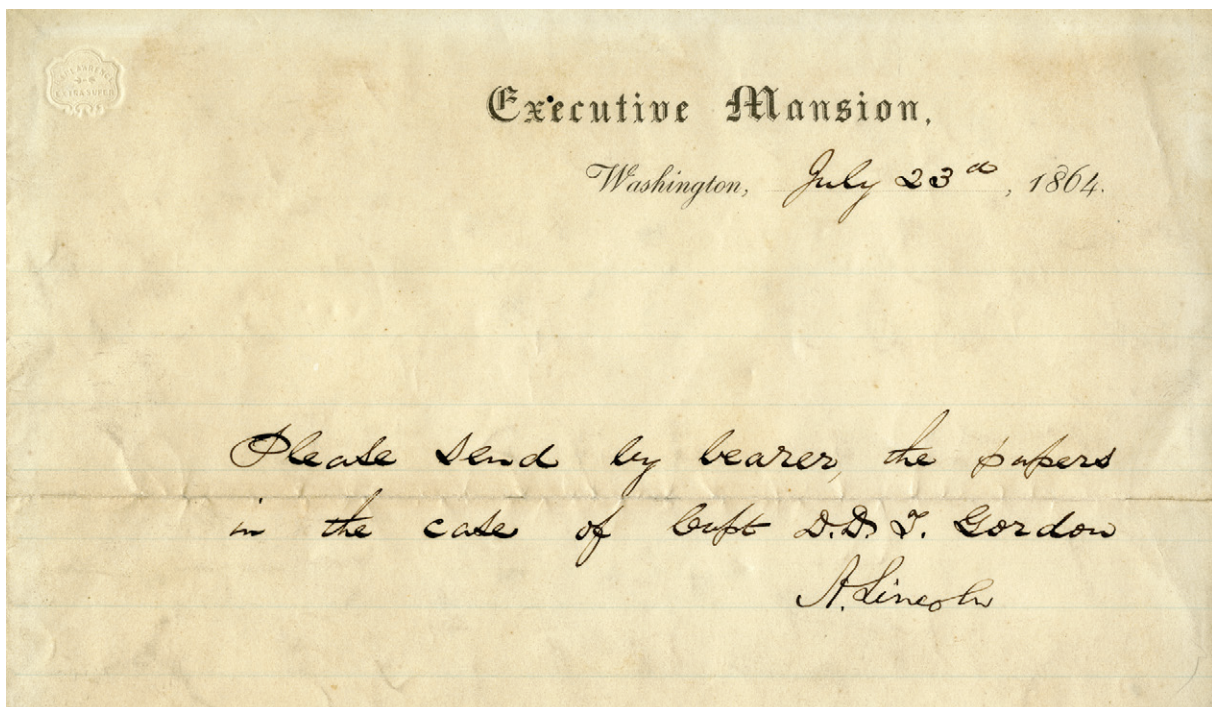 LAWRENCE
EXTRA SUPER
Executive Mansion,
Washington, July 23d, 1864.
Please send by bearer, the papers
in the case of Capt D.D. T. Gordon
A. Lincoln